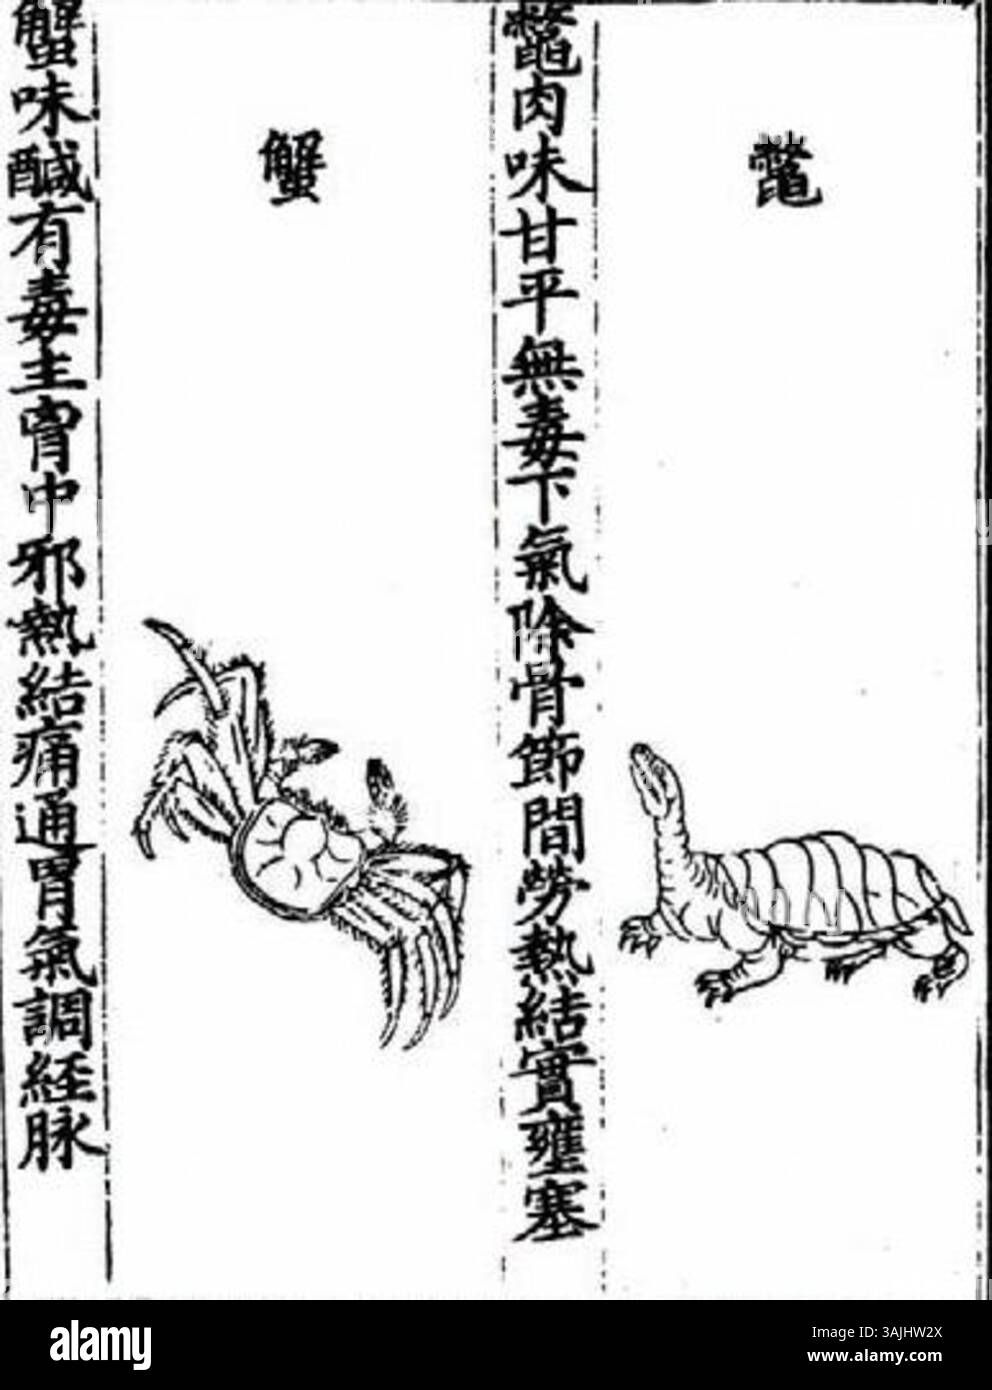 鼈
鼈肉味甘平無毒下氣除骨節間勞熱結實壅塞
蟹
蟹味醎有毒主胷中邪熱結痛通胃氣調経脉
alamy
Image ID: 3AJHW2X
www.alamy.com